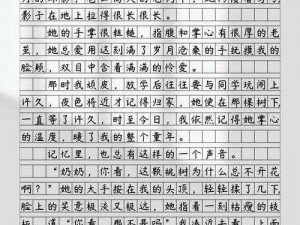 影子在她上拉得很长很长。
她的手掌很粗糙，指腹和掌心有很厚的老
茧，她总爱用这刻满了岁月沧桑的手抚摸我的
脸颊，双目中含着满满的怜爱。
那时我顽皮，放学后往往要与同学玩闹上
许久，夜色将近才记得归家，她便在那棵树下
一直等了许久，时至今日，我依然记得她掌心
的温度，暖了我的整个童年。
记忆里，也总有这样的一个声音。
“奶奶，你看，这颗桃树为什么总不开花
啊？”她的大手按在我的头顶，轻轻揉了几下，
脸上的笑意极淡又极远，她指着一封枯瘦的枝